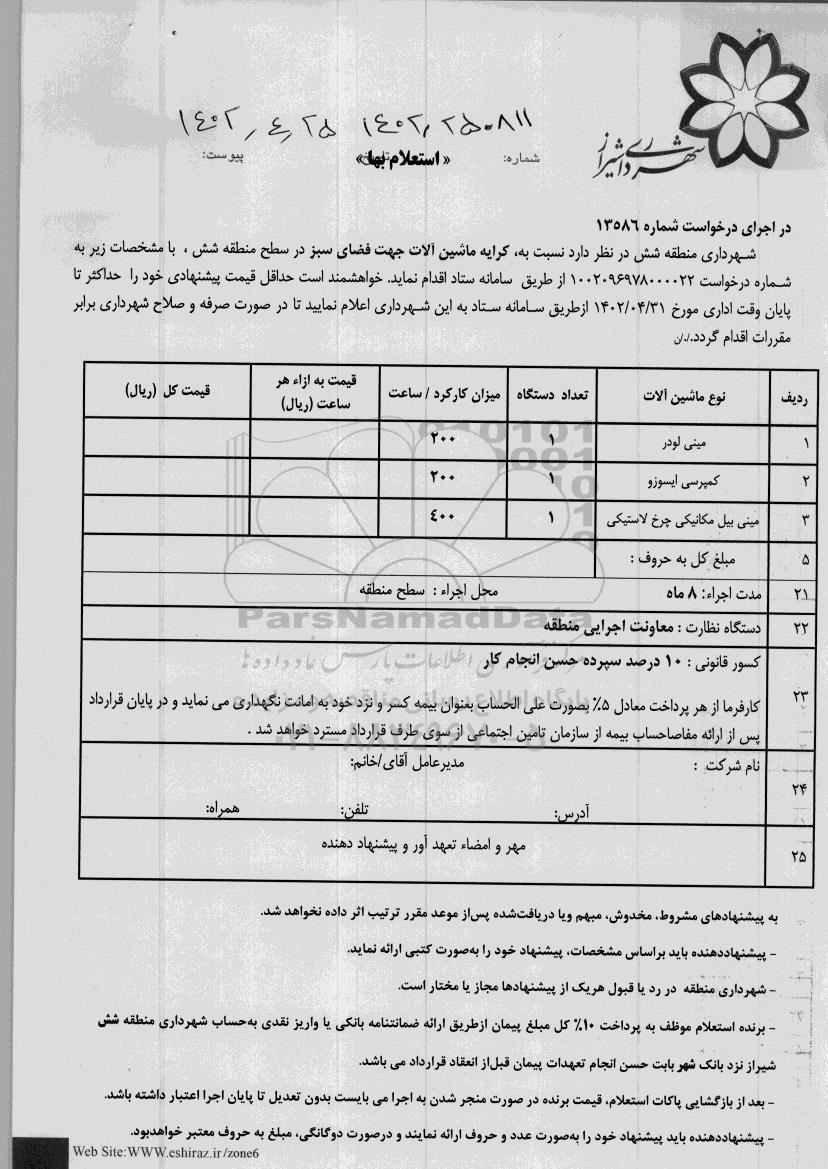 شهرداری شیراز
۱۴۰۲٫۲۵۰۸۱۱ ۱۴۰۲٫۴٫۲۵
شماره: « استعلام بها » پیوست:
در اجرای درخواست شماره ۱۳۵۸۶
شهرداری منطقه شش در نظر دارد نسبت به، کرایه ماشین آلات جهت فضای سبز در سطح منطقه شش ، با مشخصات زیر به
شماره درخواست ۱۰۰۲۰۹۶۹۷۸۰۰۰۰۲۲ از طریق سامانه ستاد اقدام نماید. خواهشمند است حداقل قیمت پیشنهادی خود را حداکثر تا
پایان وقت اداری مورخ ۱۴۰۲/۰۴/۳۱ ازطریق سامانه ستاد به این شهرداری اعلام نمایید تا در صورت صرفه و صلاح شهرداری برابر
مقررات اقدام گردد./ن
ردیف نوع ماشین آلات تعداد دستگاه میزان کارکرد / ساعت قیمت به ازاء هر ساعت (ریال) قیمت کل (ریال)
۱ مینی لودر ۱ ۲۰۰
۲ کمپرسی ایسوزو ۱ ۲۰۰
۳ مینی بیل مکانیکی چرخ لاستیکی ۱ ۴۰۰
۵ مبلغ کل به حروف :
۲۱ مدت اجراء: ۸ ماه محل اجراء : سطح منطقه
ParsNamadData
۲۲ دستگاه نظارت : معاونت اجرایی منطقه
کسور قانونی : ۱۰ درصد سپرده حسن انجام کار
۲۳ کارفرما از هر پرداخت معادل ۵٪ بصورت علی الحساب بعنوان بیمه کسر و نزد خود به امانت نگهداری می نماید و در پایان قرارداد
پس از ارائه مفاصاحساب بیمه از سازمان تامین اجتماعی از سوی طرف قرارداد مسترد خواهد شد .
۲۴ نام شرکت : مدیرعامل آقای/خانم:
آدرس: تلفن: همراه:
۲۵ مهر و امضاء تعهد آور و پیشنهاد دهنده
به پیشنهادهای مشروط، مخدوش، مبهم ویا دریافت‌شده پس‌از موعد مقرر ترتیب اثر داده نخواهد شد.
- پیشنهاددهنده باید براساس مشخصات، پیشنهاد خود را به‌صورت کتبی ارائه نماید.
- شهرداری منطقه در رد یا قبول هریک از پیشنهادها مجاز یا مختار است.
- برنده استعلام موظف به پرداخت ۱۰٪ کل مبلغ پیمان ازطریق ارائه ضمانتنامه بانکی یا واریز نقدی به‌حساب شهرداری منطقه شش
شیراز نزد بانک شهر بابت حسن انجام تعهدات پیمان قبل‌از انعقاد قرارداد می باشد.
- بعد از بازگشایی پاکات استعلام، قیمت برنده در صورت منجر شدن به اجرا می بایست بدون تعدیل تا پایان اجرا اعتبار داشته باشد.
- پیشنهاددهنده باید پیشنهاد خود را به‌صورت عدد و حروف ارائه نمایند و درصورت دوگانگی، مبلغ به حروف معتبر خواهدبود.
Web Site:WWW.eshiraz.ir/zone6